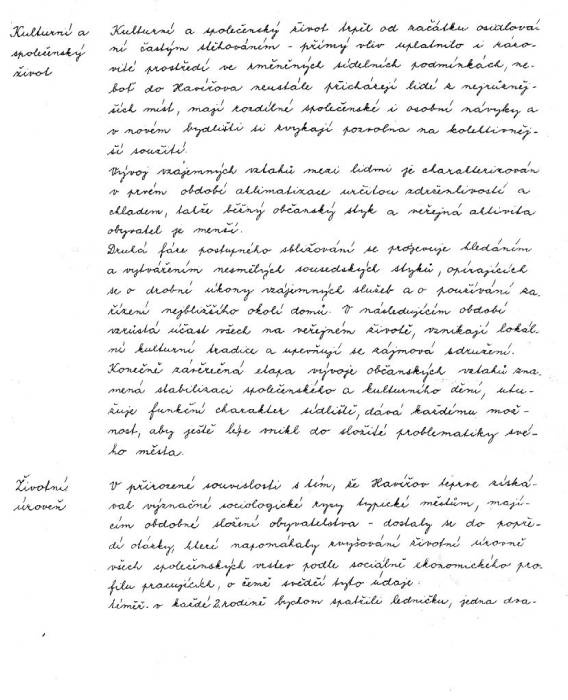 Kulturní a
společenský
život
Kulturní a společenský život trpěl od začátku osidlová-
ní častým stěhováním - přímý vliv uplatnilo i záro-
vité prostředí ve změněných sídelních podmínkách, ne-
boť do Havířova neustále přicházejí lidé z nejrůzněj-
ších míst, mají rozdílné společenské i osobní návyky a
v novém bydlišti si zvykají pozvolna na kolektivněj-
ší soužití.
Vývoj vzájemných vztahů mezi lidmi je charakterizován
v prvém období aklimatizace určitou zdrženlivostí a
chladem, takže běžný občanský styk a veřejná aktivita
obyvatel je menší.
Druhá fáze postupného sbližování se projevuje hledáním
a vytvářením nesmělých sousedských styků, opírajících
se o drobné úkony vzájemných služeb a o používání za-
řízení nejbližšího okolí domů. V následujícím období
vzrůstá účast všech na veřejném životě, vznikají lokál-
ní kulturní tradice a upevňují se zájmová sdružení.
Konečně závěrečná etapa vývoje občanských vztahů zna-
mená stabilizaci společenského a kulturního dění, utu-
žuje funkční charakter sídliště, dává každému mož-
nost, aby ještě lépe vnikl do složité problematiky své-
ho města.
Životní
úroveň
V přirozené souvislosti s tím, že Havířov teprve získá-
val význačné sociologické rysy typické městům, mají-
cím obdobné složení obyvatelstva - dostaly se do popře-
dí otázky, které napomáhaly zvyšování životní úrovně
všech společenských vrstev podle sociálně ekonomického pro-
filu pracujících, o čemž svědčí tyto údaje:
téměř v každé 2. rodině bychom spatřili ledničku, jedna dva-